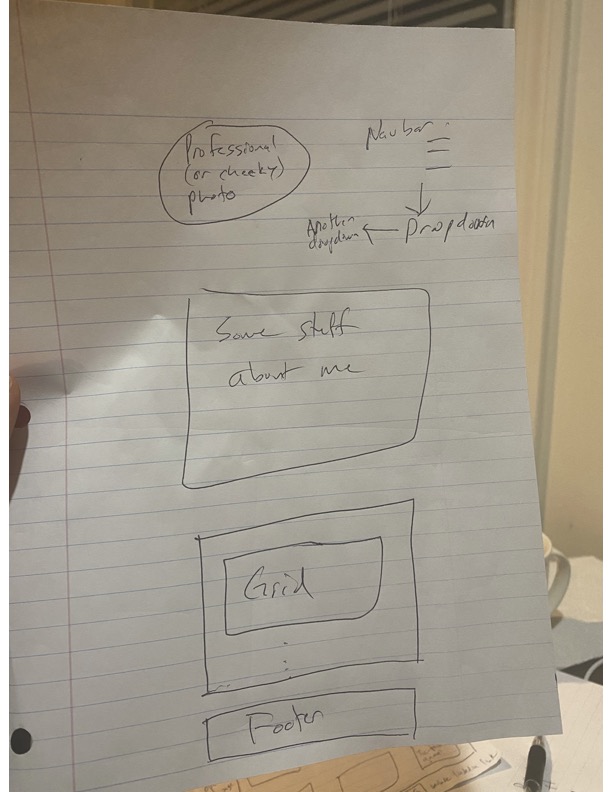 Professional
(or cheeky)
photo
Navbar
Dropdown
Another
dropdown
Some stuff
about me
Grid
Footer